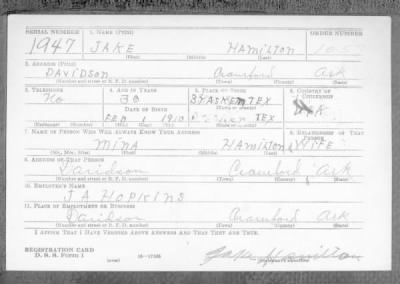 SERIAL NUMBER 1. NAME (Print) ORDER NUMBER
1947 JAKE HAMILTON 1055
(First) (Middle) (Last)
2. ADDRESS (Print)
DAVIDSON Crawford Ark
(Number and street or R. F. D. number) (Town) (County) (State)
3. TELEPHONE 4. AGE IN YEARS 5. PLACE OF BIRTH 6. COUNTRY OF CITIZENSHIP
No 30 TEX
DATE OF BIRTH
FEB 1 1910 TEX
7. NAME OF PERSON WHO WILL ALWAYS KNOW YOUR ADDRESS 8. RELATIONSHIP OF THAT PERSON
MINA HAMILTON WIFE
(Mr., Mrs., Miss) (First) (Middle) (Last)
9. ADDRESS OF THAT PERSON
Davidson Crawford Ark
(Number and street or R. F. D. number) (Town) (County) (State)
10. EMPLOYER'S NAME
J A HOPKINS
11. PLACE OF EMPLOYMENT OR BUSINESS
Davidson Crawford Ark
(Number and street or R. F. D. number) (Town) (County) (State)
I AFFIRM THAT I HAVE VERIFIED ABOVE ANSWERS AND THAT THEY ARE TRUE.
REGISTRATION CARD
D. S. S. Form 1 (over) 16-17105 Jake Hamilton